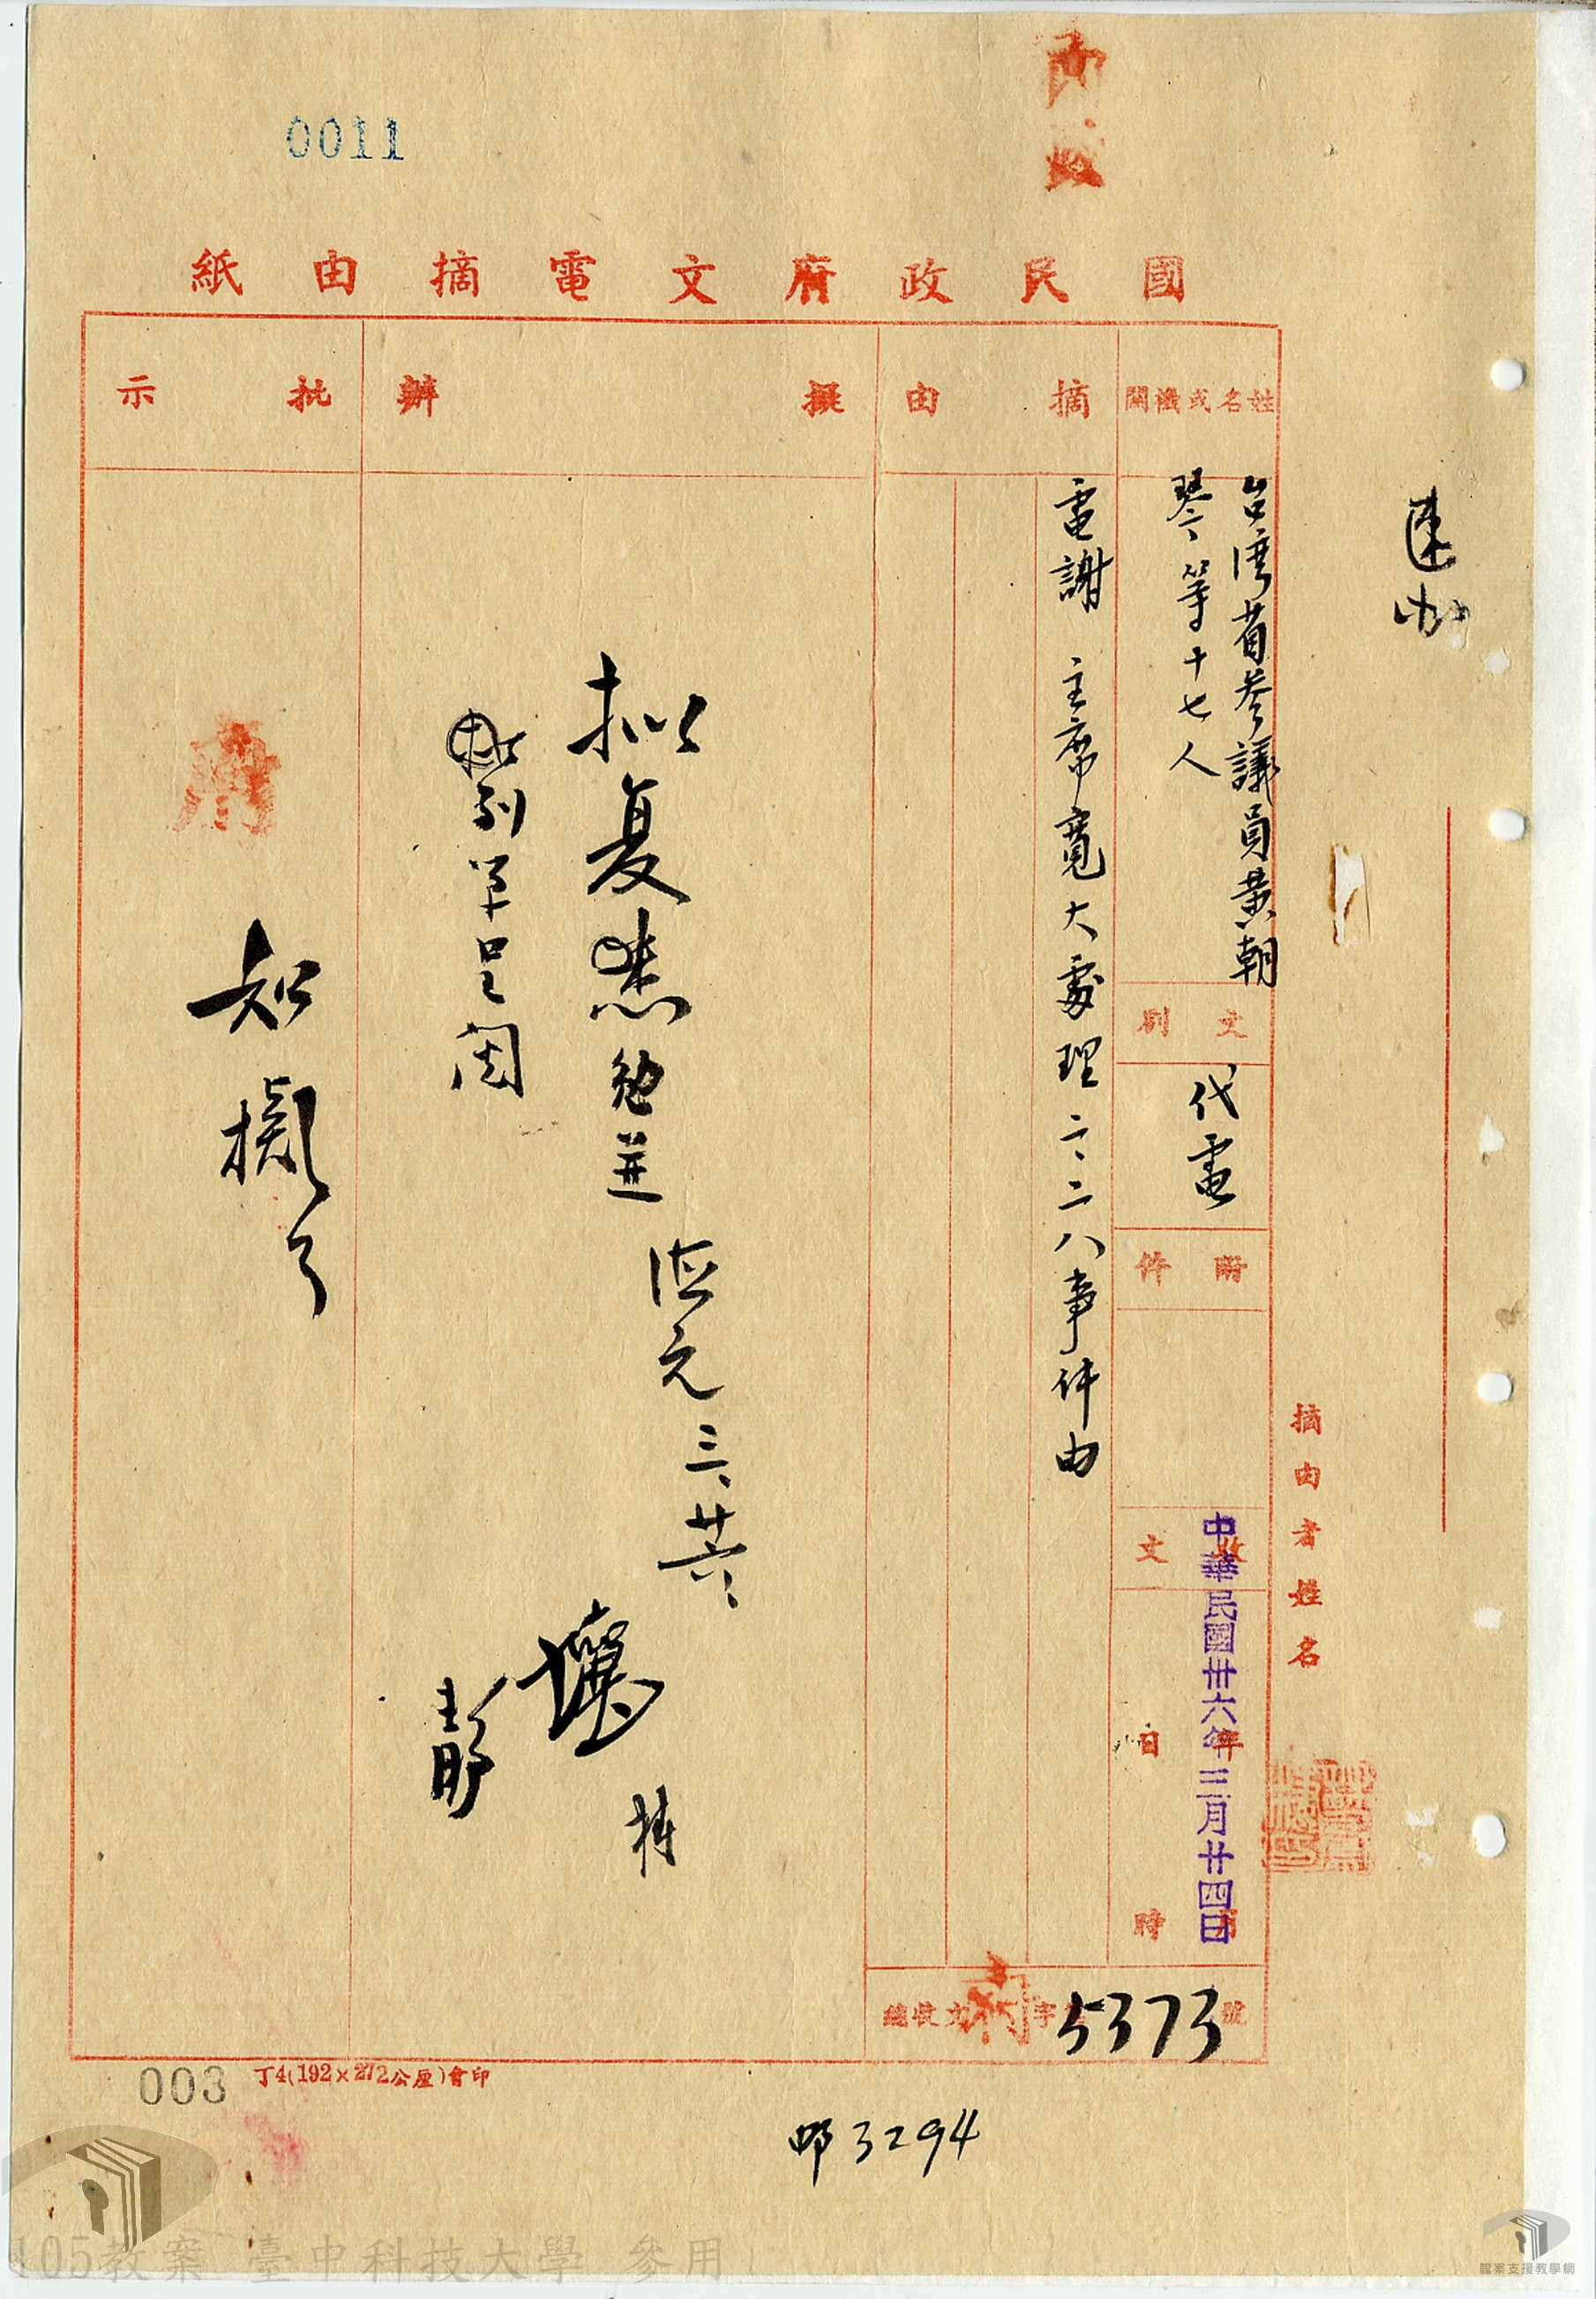 0011
國民政府文電摘由紙
姓名或機關
台湾省参議員黃朝
琴等十七人
文別
代電
附件
收文
中華民國卅六年三月廿四日
年
日
時
摘由
電謝 主席寬大處理二、二八事件由
擬辦
拟复悉勉並
列单呈閱
三、廿六、
批示
知
府
摘由者姓名
總收文 字 5373 號
003
丁4(192×272公厘)會印
3294
105教案 臺中科技大學 參用
檔案支援教學網